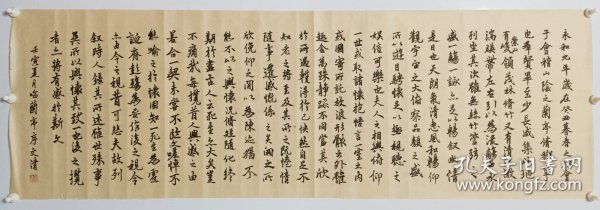 永和九年歲在癸丑暮春之初會
于會稽山陰之蘭亭脩禊事
也群賢畢至少長咸集此地
有崇山峻領茂林脩竹又有清流激
湍暎帶左右引以為流觴曲水
列坐其次雖無絲竹管弦之
盛一觴一詠亦足以暢敘幽情
是日也天朗氣清惠風和暢仰
觀宇宙之大俯察品類之盛
所以遊目騁懷足以極視聽之
娛信可樂也夫人之相與俯仰
一世或取諸懷抱悟言一室之內
或因寄所託放浪形骸之外雖
趣舍萬殊靜躁不同當其欣
於所遇蹔得於己快然自足不
知老之將至及其所之既惓情
隨事遷感慨係之矣向之所
欣俛仰之間以為陳迹猶不
能不以之興懷況脩短隨化終
期於盡古人云死生亦大矣豈
不痛哉每攬昔人興感之由
若合一契未嘗不臨文嗟悼不
能喻之於懷固知一死生為虛
誕齊彭殤為妄作後之視今
亦由今之視昔悲夫故列
敘時人錄其所述雖世殊事
異所以興懷其致一也後之攬
者亦將有感於斯文
壬寅夏月臨蘭亭序文清
孔夫子旧书网
kongfz.com